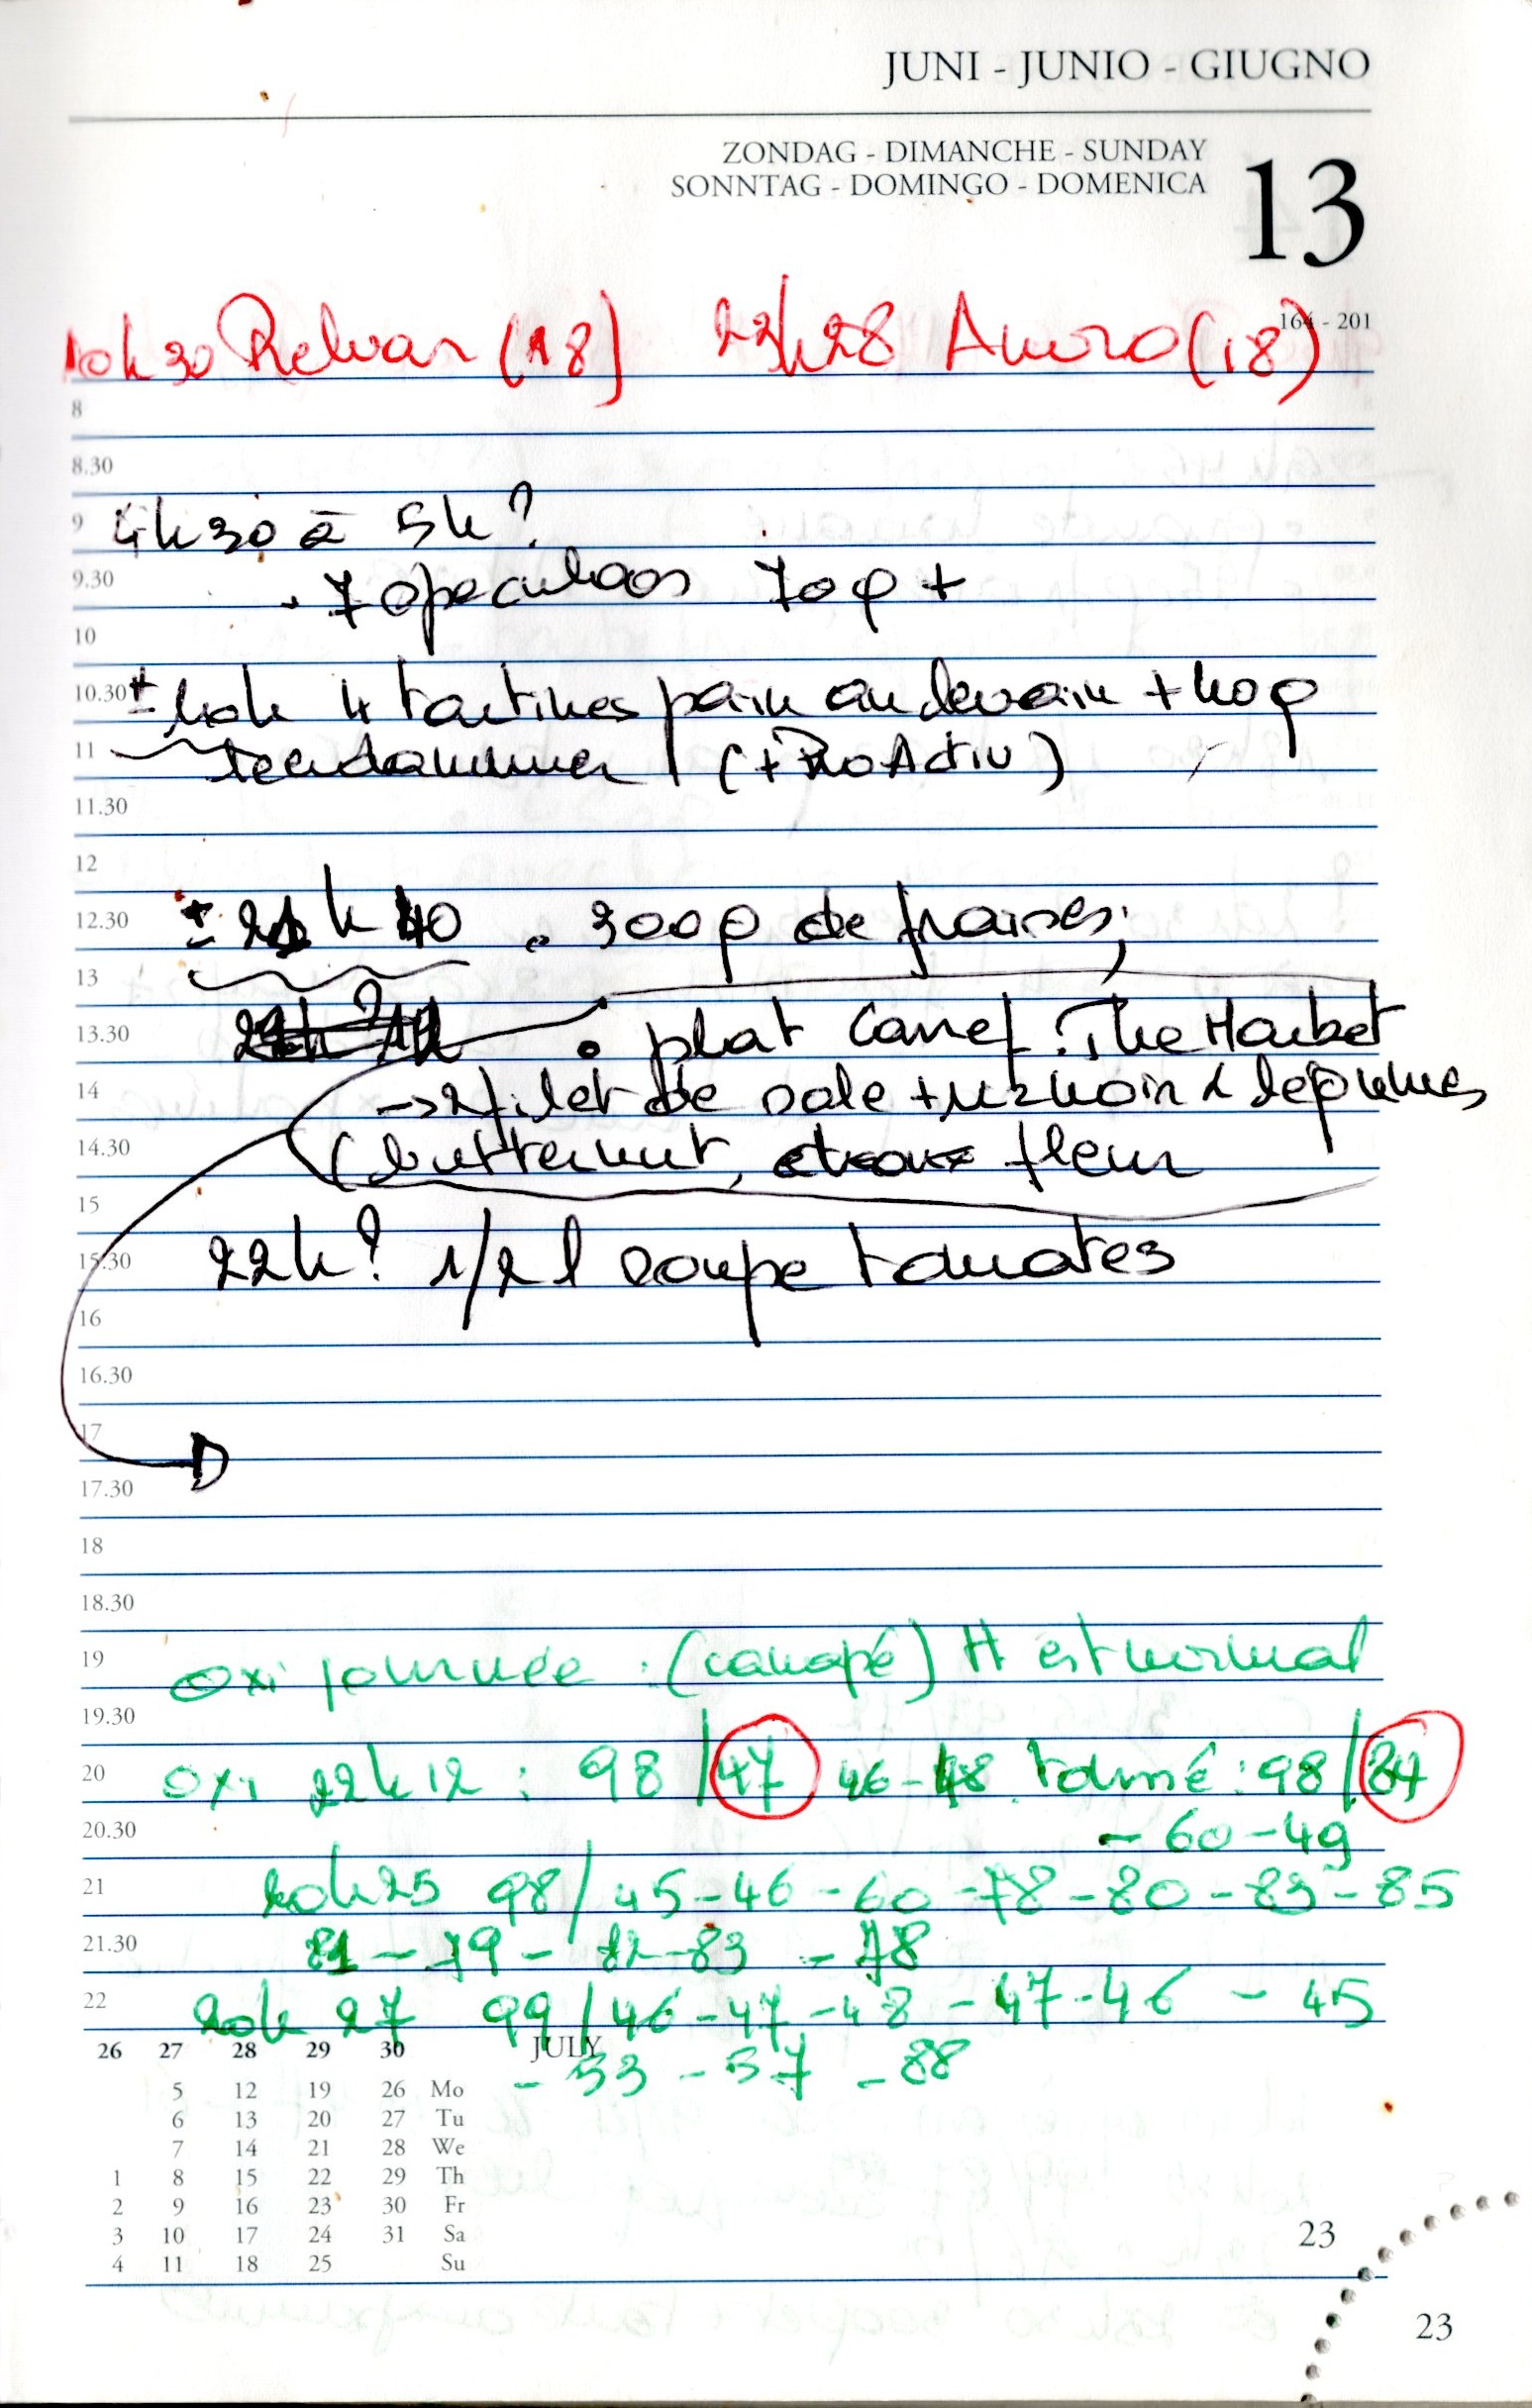 JUNI - JUNIO - GIUGNO
ZONDAG - DIMANCHE - SUNDAY
SONNTAG - DOMINGO - DOMENICA
13
164 - 201
10h30 Relvar (18) 22h28 Anoro (18)
8
8.30
9 4h30 à 5h?
9.30 . 7 speculoos 70g +
10
10.30 ± 4 tartines pain au levain +
11 leerdammer (+ ProActiv)
11.30
12
12.30 ± 21h40 . 300g de fraises;
13
13.30 . plat Carref. The Market
14 → 2 filet de sole + légumes
14.30 (butternut, fleur
15
15.30 22h? 1/2 l soupe tomates
16
16.30
17
17.30
18
18.30
19 oxi journée : (canapé) H est normal
19.30
20 oxi 22h12 : 98/47 46-48 : 98/84
20.30 - 60-49
21 20h25 98/45-46-60-78-80-83-85
21.30 81-79-82-83-78
22 20h27 99/46-47-48-47-46-45
26 27 28 29 30 JULY
- 53 - 57 - 88
5 12 19 26 Mo
6 13 20 27 Tu
7 14 21 28 We
1 8 15 22 29 Th
2 9 16 23 30 Fr
3 10 17 24 31 Sa
4 11 18 25 Su
23
23